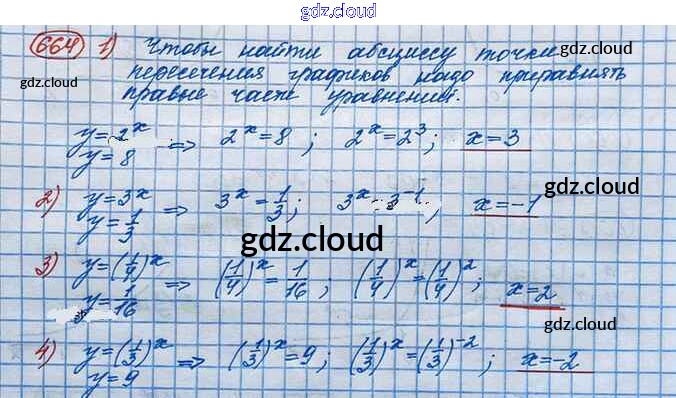 gdz.cloud
gdz.cloud
664 1) Чтобы найти абсциссу точки
gdz.cloud
пересечения графиков надо приравнять
gdz.cloud
правые части уравнений.
y=2^x
y=8 => 2^x=8; 2^x=2^3; x=3
gdz.cloud
2) y=3^x
y=1/3 => 3^x=1/3; 3^x=3^-1; x=-1
gdz.cloud
3) y=(1/4)^x
y=1/16 => (1/4)^x=1/16; (1/4)^x=(1/4)^2; x=2
gdz.cloud
4) y=(1/3)^x
y=9 => (1/3)^x=9; (1/3)^x=(1/3)^-2; x=-2
gdz.cloud